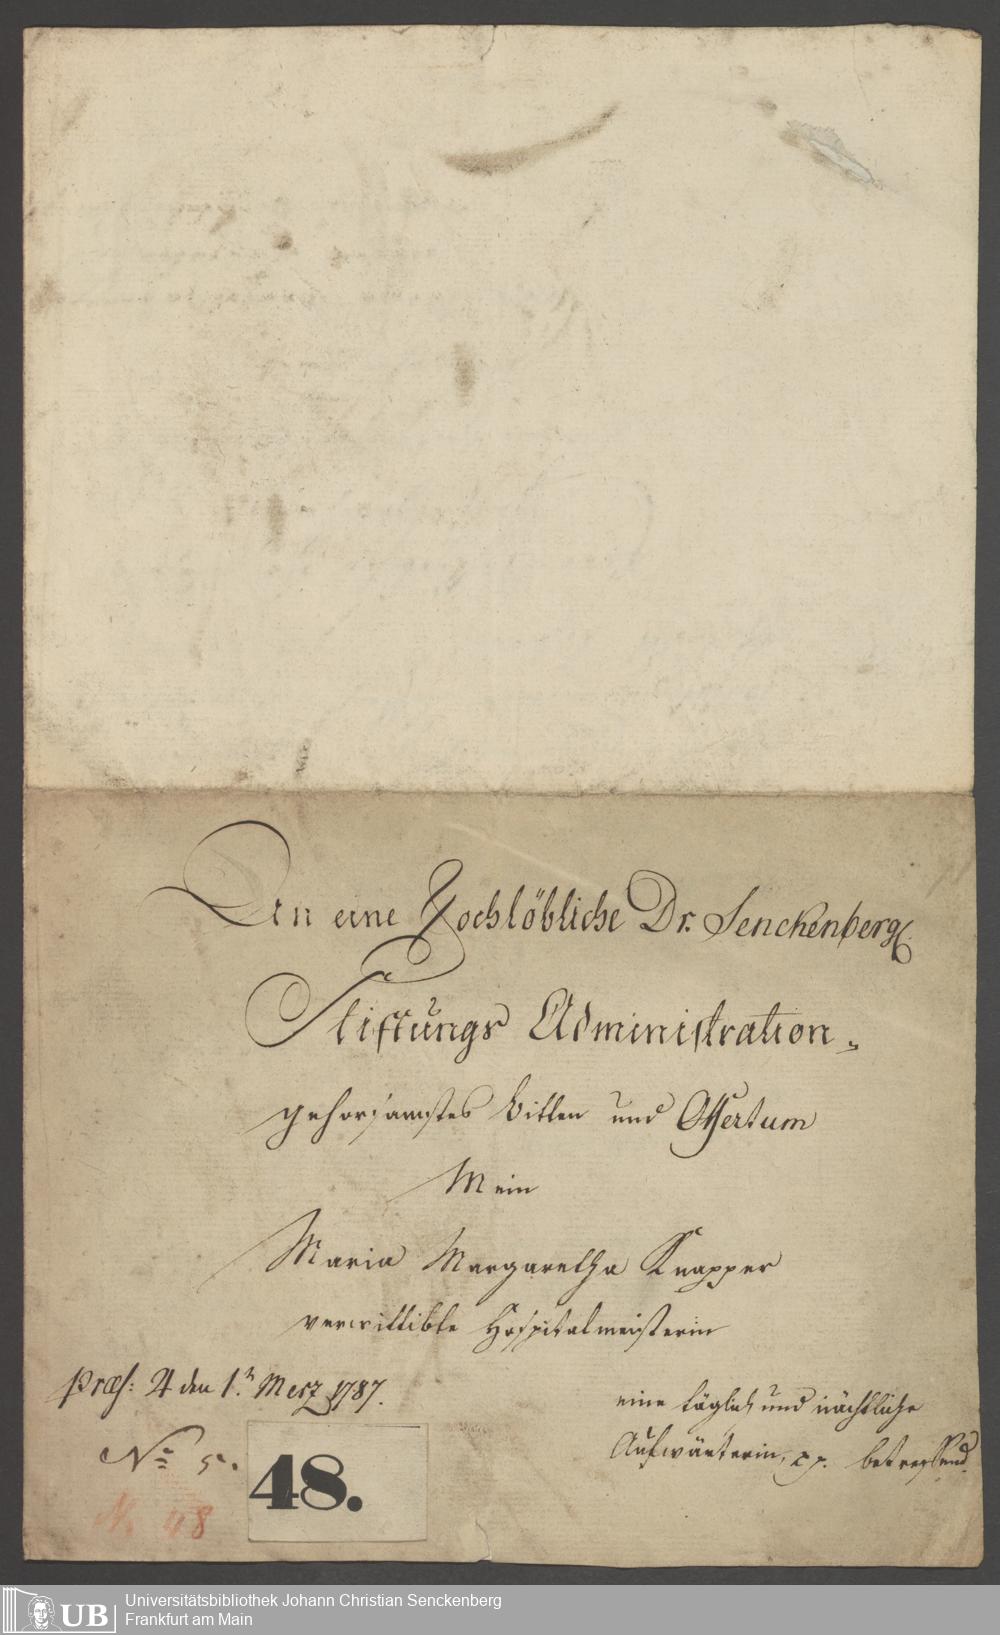 An eine Hochlöbliche Dr. Senckenberg.
Stiftungs Administration.
gehorsamstes Bitten und Offertum
Mein
Maria Margaretha Knapper
verwittibte Hospitalmeisterin
præs: ♃ den 1.ᵗ Merz 1787.
eine täglich und nächtliche
Aufwärterin, pp. betreffend.
No 5.
48.
No 48
UB
Universitätsbibliothek Johann Christian Senckenberg
Frankfurt am Main